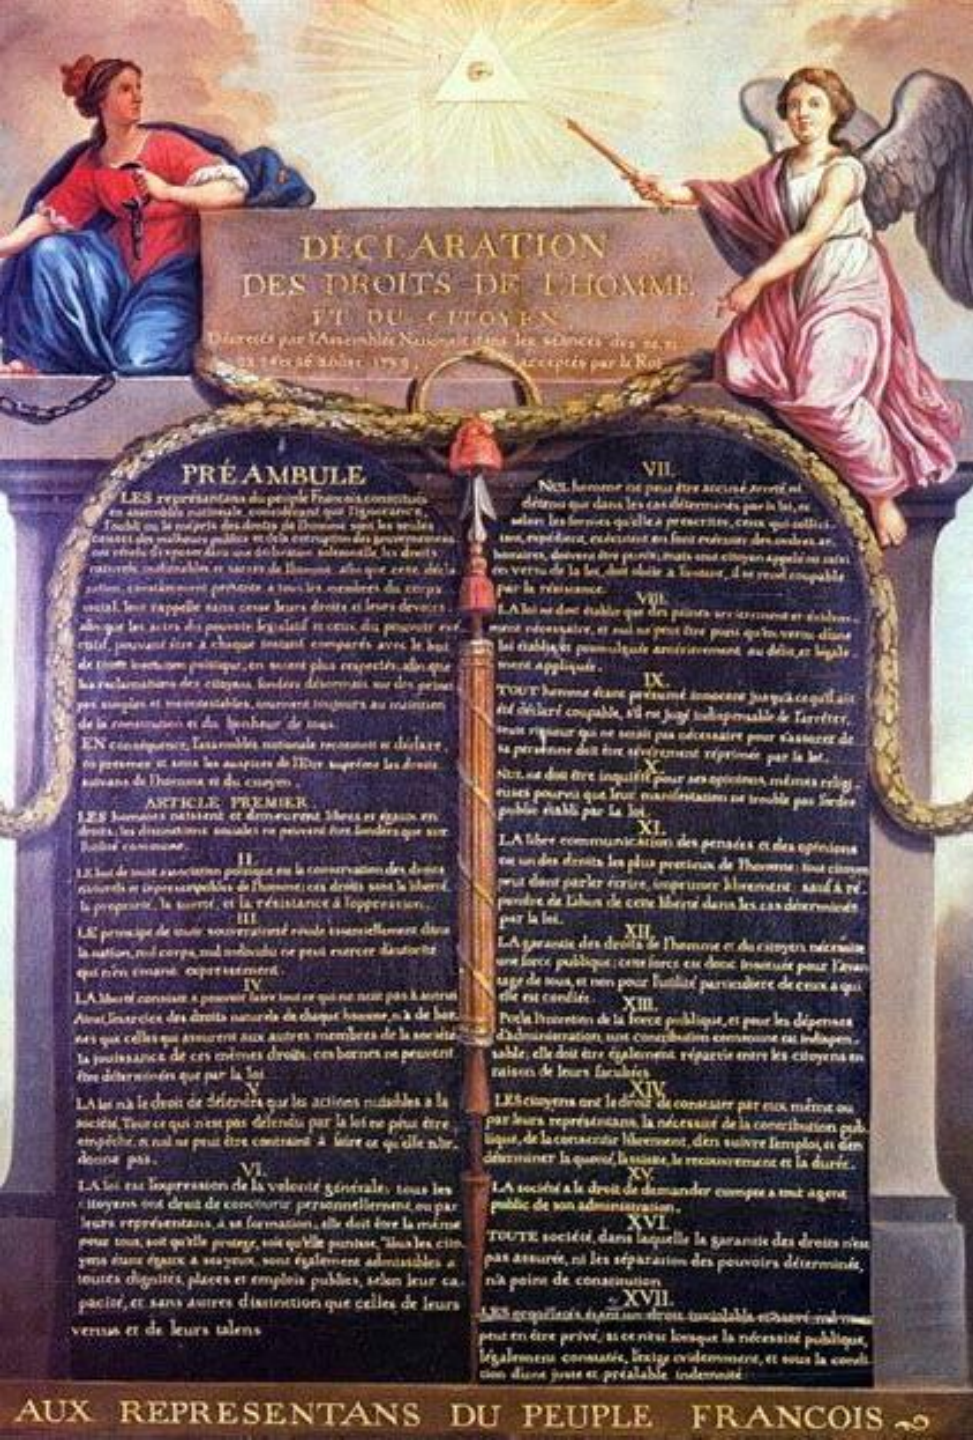 DÉCLARATION
DES DROITS DE L'HOMME
ET DU CITOYEN.
Décretés par l'Assemblée Nationale dans les séances des 20. 21
acceptés par le Roi
PRÉAMBULE
LES représentans du peuple François, constitués
en assemblée nationale, considérant que l'ignorance,
l'oubli ou le mépris des droits de l'homme sont les seules
causes des malheurs publics et de la corruption des gouvernemens
ont résolu d'exposer dans une déclaration solemnelle, les droits
naturels, inaliénables et sacrés de l'homme: afin que cette décla
ration, constamment présente à tous les membres du corps
social, leur rappelle sans cesse leurs droits et leurs devoirs:
afin que les actes du pouvoir législatif et ceux du pouvoir exé-
cutif, pouvant être à chaque instant comparés avec le but
de toute institution politique, en soient plus respectés; afin que
les réclamations des citoyens, fondées désormais sur des principes
simples et incontestables, tournent toujours au maintien
de la constitution et du bonheur de tous.
EN conséquence, l'assemblée nationale reconnoit et déclare,
en présence et sous les auspices de l'Être suprême les droits
suivans de l'homme et du citoyen.
ARTICLE PREMIER.
LES hommes naissent et demeurent libres et égaux en
droits; les distinctions sociales ne peuvent être fondées que sur
l'utilité commune.
II.
LE but de toute association politique est la conservation des droits
naturels et imprescriptibles de l'homme; ces droits sont la liberté,
la propriété, la sureté, et la résistance à l'oppression.
III.
LE principe de toute souveraineté réside essentiellement dans
la nation, nul corps, nul individu ne peut exercer d'autorité
qui n'en émane expressément.
IV.
LA liberté consiste à pouvoir faire tout ce qui ne nuit pas à autrui
Ainsi, l'exercice des droits naturels de chaque homme, n'a de bor-
nes que celles qui assurent aux autres membres de la société
la jouissance de ces mêmes droits; ces bornes ne peuvent
être déterminées que par la loi.
V.
LA loi n'a le droit de défendre que les actions nuisibles à la
société. Tout ce qui n'est pas défendu par la loi ne peut être
empêché, et nul ne peut être contraint à faire ce qu'elle n'or-
donne pas.
VI.
LA loi est l'expression de la volonté générale; tous les
citoyens ont droit de concourir personnellement, ou par
leurs représentans, à sa formation; elle doit être la même
pour tous, soit qu'elle protege, soit qu'elle punisse. Tous les cito-
yens étant égaux à ses yeux, sont également admissibles à
toutes dignités, places et emplois publics, selon leur ca-
pacité, et sans autres distinction que celles de leurs
vertus et de leurs talens
VII.
NUL homme ne peut être accusé, arrêté ni
détenu que dans les cas déterminés par la loi, et
selon les formes qu'elle a prescrites, ceux qui sollici-
tent, expédient, exécutent ou font exécuter des ordres ar-
bitraires, doivent être punis; mais tout citoyen appelé ou saisi
en vertu de la loi, doit obéir à l'instant, il se rend coupable
par la résistance.
VIII.
LA loi ne doit établir que des peines strictement et évidem-
ment nécessaire, et nul ne peut être puni qu'en vertu d'une
loi établie et promulguée antérieurement au délit, et légale
ment appliquée.
IX.
TOUT homme étant présumé innocent jusqu'à ce qu'il ait
été déclaré coupable, s'il est jugé indispensable de l'arrêter,
toute rigueur qui ne serait pas nécessaire pour s'assurer de
sa personne doit être sévèrement réprimée par la loi.
X.
NUL ne doit être inquiété pour ses opinions, mêmes religi
euses pourvu que leur manifestation ne trouble pas l'ordre
public établi par la loi.
XI.
LA libre communication des pensées et des opinions
est un des droits les plus précieux de l'homme; tout citoyen
peut donc parler, écrire, imprimer librement: sauf à ré
pondre de l'abus de cette liberté dans les cas déterminés
par la loi.
XII.
LA garantie des droits de l'homme et du citoyen nécessite
une force publique; cette force est donc instituée pour l'avan
tage de tous, et non pour l'utilité particulière de ceux à qui
elle est confiée.
XIII.
Pour l'entretien de la force publique, et pour les dépenses
d'administration, une contribution commune est indispen-
sable; elle doit être également répartie entre les citoyens en
raison de leurs facultées.
XIV.
LES citoyens ont le droit de constater par eux même ou
par leurs représentans, la nécessité de la contribution pub-
lique, de la consentir librement, d'en suivre l'emploi, et d'en
déterminer la quotité, l'assiette, le recouvrement et la durée.
XV.
LA société a le droit de demander compte à tout agent
public de son administration.
XVI.
TOUTE société, dans laquelle la garantie des droits n'est
pas assurée, ni les séparation des pouvoirs déterminés,
n'a point de constitution
XVII.
LES propriétés étant un droit inviolable et sacré, nul ne
peut en être privé, si ce n'est lorsque la nécessité publique,
légalement constatée, l'exige évidemment, et sous la condi-
tion d'une juste et préalable indemnité.
AUX REPRESENTANS DU PEUPLE FRANCOIS